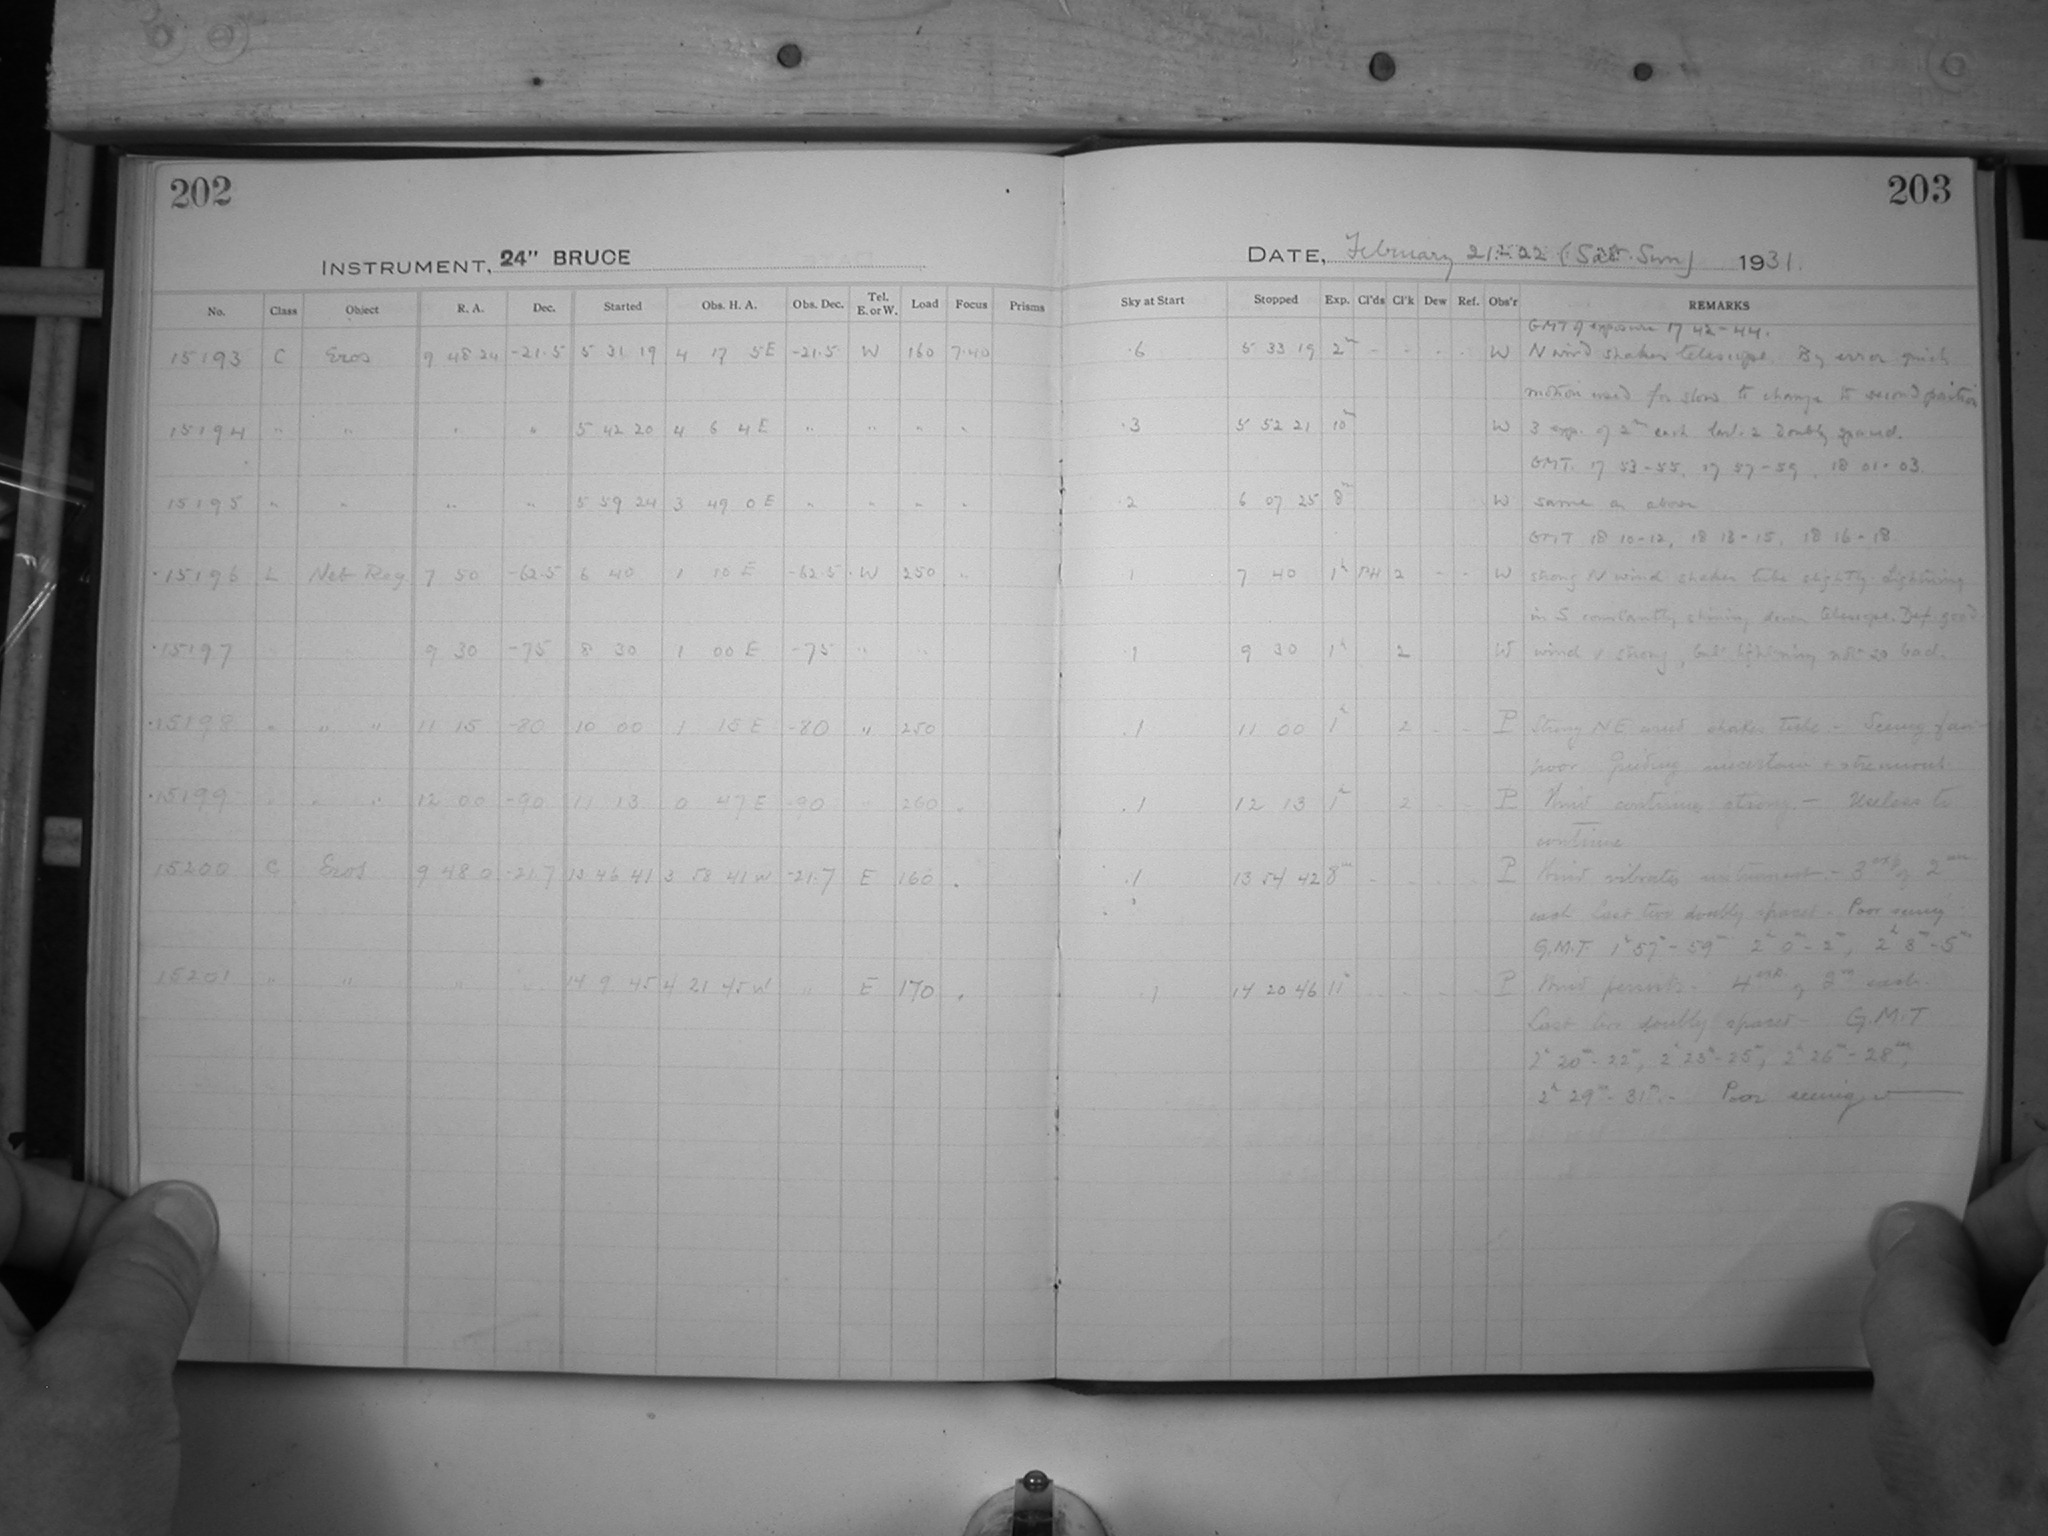 202
203
INSTRUMENT, 24" BRUCE
DATE, February 21-22 (Sat-Sun) 1931.
No. Class Object R. A. Dec. Started Obs. H. A. Obs. Dec. Tel. E. or W. Load Focus Prisms Sky at Start Stopped Exp. Cl'ds Cl'k Dew Ref. Obs'r REMARKS
GMT of exposure 17 42-44.
15193 C Eros 9 48 24 -21.5 5 31 19 4 17 5 E -21.5 W 160 7.40 .6 5 33 19 2m - - . . W N wind shakes telescope. By error quick
motion used for slow to change to second position
15194 " " " " 5 42 20 4 6 4 E " " " " .3 5 52 21 10m W 3 exp. of 2m each last 2 doubly spaced.
GMT. 17 53-55, 17 57-59, 18 01-03
15195 " " " " 5 59 24 3 49 0 E " " " " .2 6 07 25 8m W same as above
GMT 18 10-12, 18 13-15, 18 16-18
15196 L Neb Reg 7 50 -62.5 6 40 1 10 E -62.5 W 250 " 1 7 40 1h 2 - - W strong N wind shakes tube slightly. Lightning
in S constantly shining down telescope. Def. good
15197 9 30 -75 8 30 1 00 E -75 " " 1 9 30 1h 2 W wind strong, but lightning not so bad.
15198 " " " 11 15 -80 10 00 1 15 E -80 " 250 .1 11 00 1h 2 - - P Strong NE wind shakes tube - Seeing fair-
poor Guiding uncertain + strenuous.
15199 " " " 12 00 -90 11 13 0 47 E -90 " 260 " .1 12 13 1h 2 - - P Wind continues strong. - Useless to
continue
15200 C Eros 9 48 0 -21.7 13 46 41 3 58 41 W -21.7 E 160 " .1 13 54 42 8m - - - - P Wind vibrates instrument - 3 exp of 2m
each Last two doubly spaced. Poor seeing
G.M.T. 1h 57m - 59m 2h 0m - 2m, 2h 3m - 5m
15201 " " " " 14 9 45 4 21 45 W " E 170 " .1 14 20 46 11m - - - - P Wind persists - 4 exp of 2m each.
Last two doubly spaced - G.M.T
2h 20m - 22m, 2h 23m - 25m, 2h 26m - 28m,
2h 29m - 31m. - Poor seeing